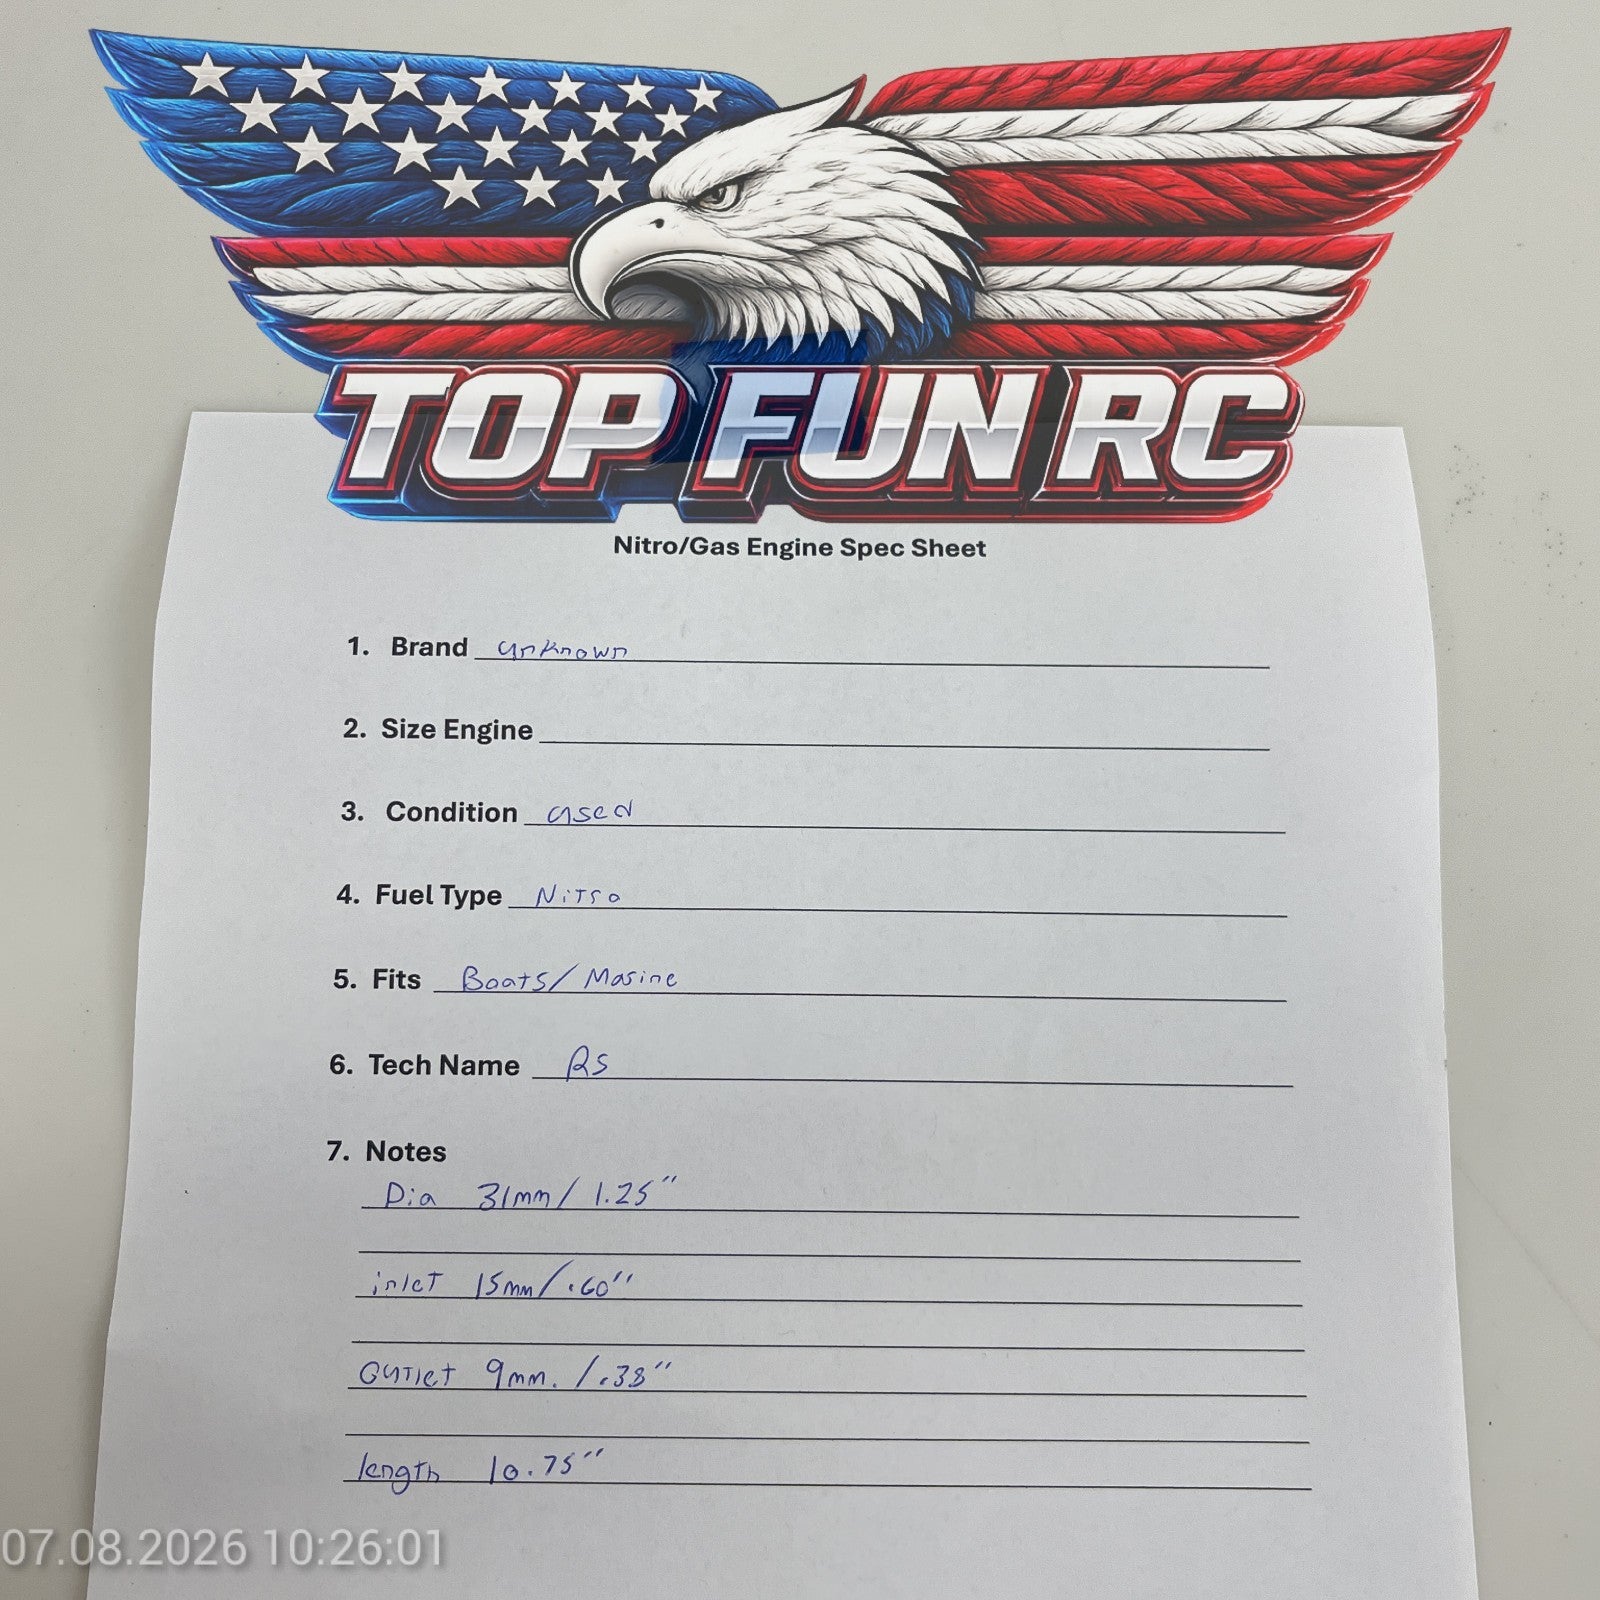 TOP FUN RC
Nitro/Gas Engine Spec Sheet
1. Brand unknown
2. Size Engine
3. Condition used
4. Fuel Type Nitro
5. Fits Boats/Marine
6. Tech Name RS
7. Notes
Dia 31mm/ 1.25"
inlet 15mm/.60"
Outlet 9mm. /.38"
length 10.75"
07.08.2026 10:26:01